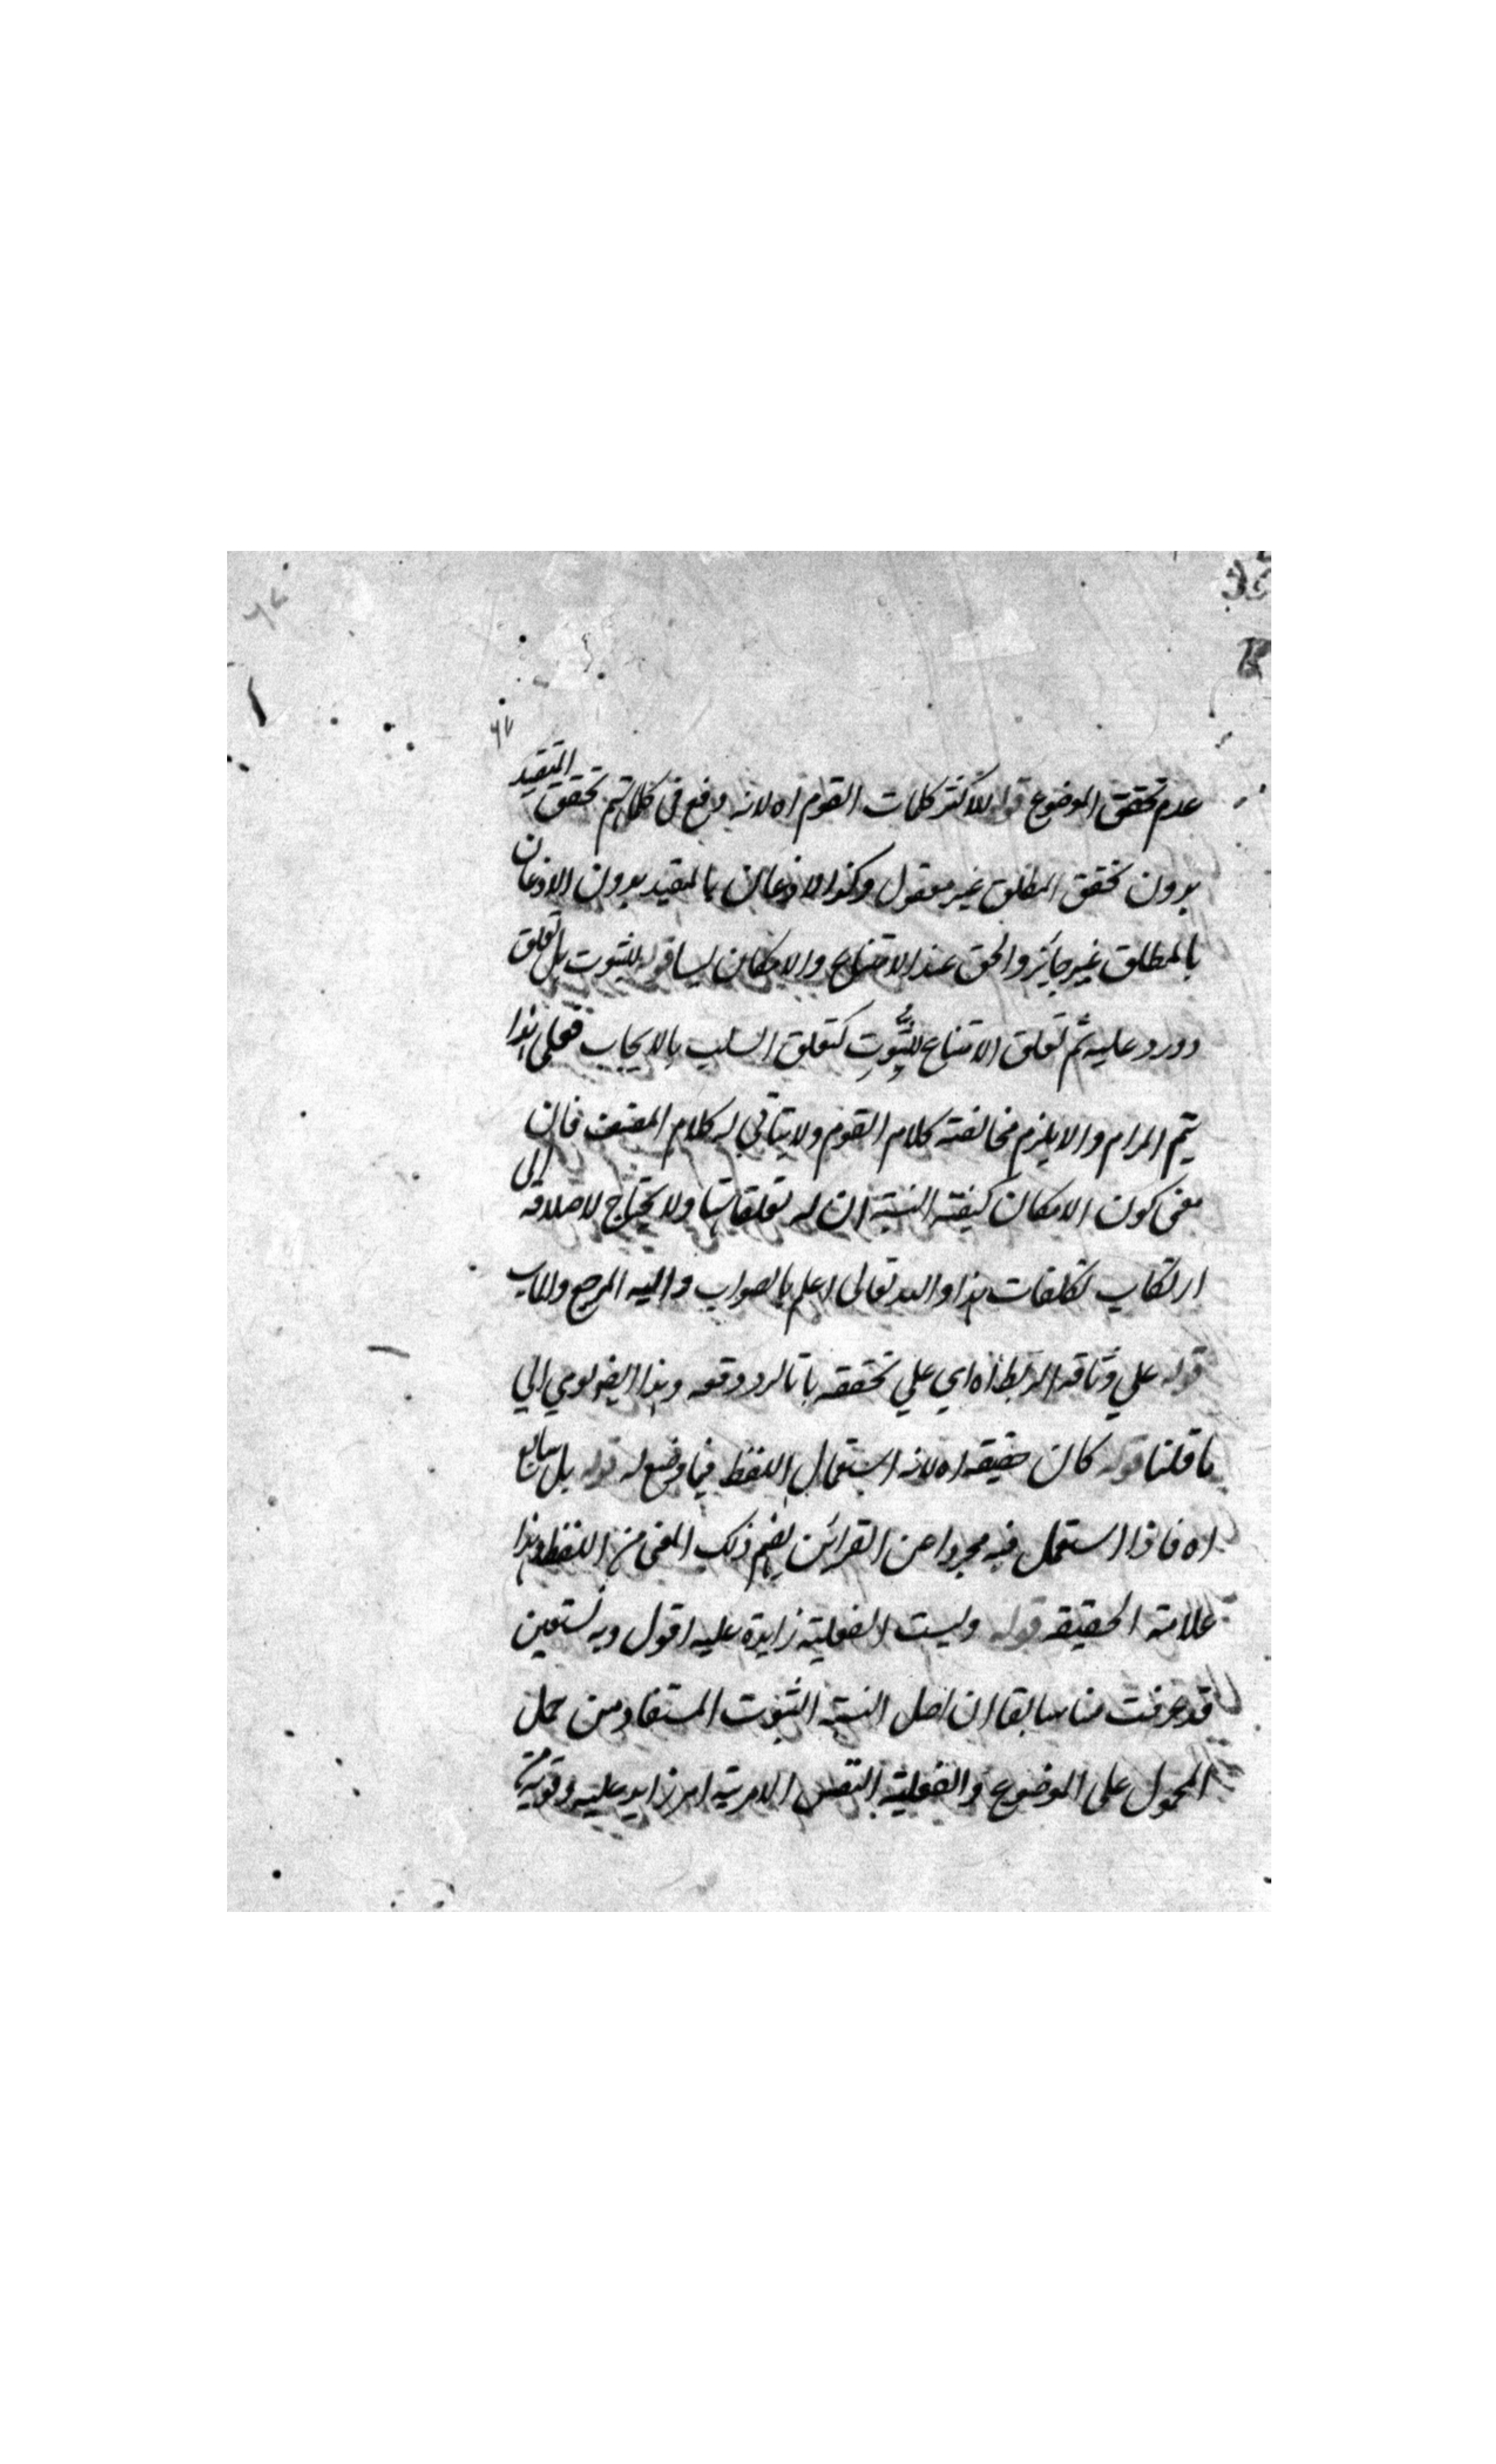 ٦٧
عدم تحقق الموضوع قوله لاكثر كلمات القوم اه لانه وقع في كلامهم تحقق المقيد
بدون تحقق المطلق غير معقول وكذا الاذعان بالمقيد بدون الاذعان
بالمطلق غير جائز والحق عند الامتناع والامكان ليسا للثبوت بل تعلق
ورد عليه ثم تعلق الامتناع للثبوت كتعلق السلب بالايجاب فعلى هذا
يتم المرام والا يلزم مخالفة كلام القوم ولا يتاتى له كلام المصنف فان
معنى كون الامكان كيفية النسبة ان له تعلقا بها ولا يحتاج لاصلاحه الى
ارتكاب تكلفات هذا والله تعالى اعلم بالصواب واليه المرجع والماب
قوله على وثاقة الربط اه اي على تحققه وهذا ايضا يودي الى
ما قلنا قوله كان حقيقة اه لانه استعمال اللفظ فيما وضع له قوله بل شايع
اه فاذا استعمل فيه مجردا عن القرائن يفهم ذلك المعنى من اللفظ وهذا
علامة الحقيقة قوله وليست الفعلية زايدة عليه اقول وبه نستعين
قد عرفت منا سابقا ان اصل النسبة الثبوت المستفاد من حمل
المحمول على الموضوع والفعلية النفس الامرية امر زايد عليه